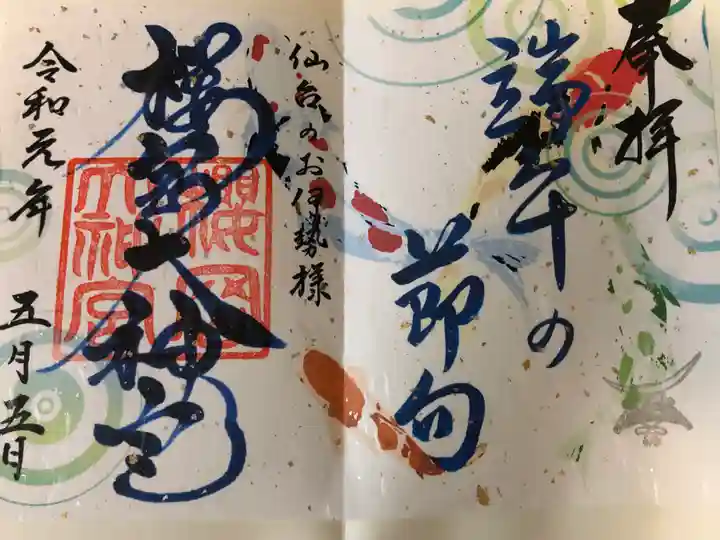 奉拝
端午の
節句
仙台のお伊勢様
櫻岡大神宮
櫻岡
大神宮
令和元年
五月五日